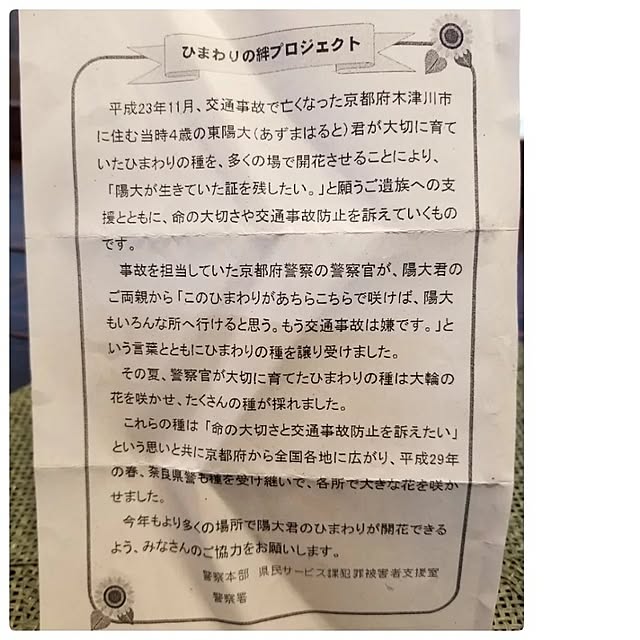 ひまわりの絆プロジェクト
平成23年11月、交通事故で亡くなった京都府木津川市
に住む当時4歳の東陽大(あずまはると)君が大切に育て
ていたひまわりの種を、多くの場で開花させることにより、
「陽大が生きていた証を残したい。」と願うご遺族への支
援とともに、命の大切さや交通事故防止を訴えていくもの
です。
事故を担当していた京都府警察の警察官が、陽大君の
ご両親から「このひまわりがあちらこちらで咲けば、陽大
もいろんな所へ行けると思う。もう交通事故は嫌です。」と
いう言葉とともにひまわりの種を譲り受けました。
その夏、警察官が大切に育てたひまわりの種は大輪の
花を咲かせ、たくさんの種が採れました。
これらの種は「命の大切さと交通事故防止を訴えたい」
という思いと共に京都府から全国各地に広がり、平成29年
の春、奈良県警も種を受け継いで、各所で大きな花を咲か
せました。
今年もより多くの場所で陽大君のひまわりが開花できる
よう、みなさんのご協力をお願いします。
警察本部 県民サービス課犯罪被害者支援室
警察署